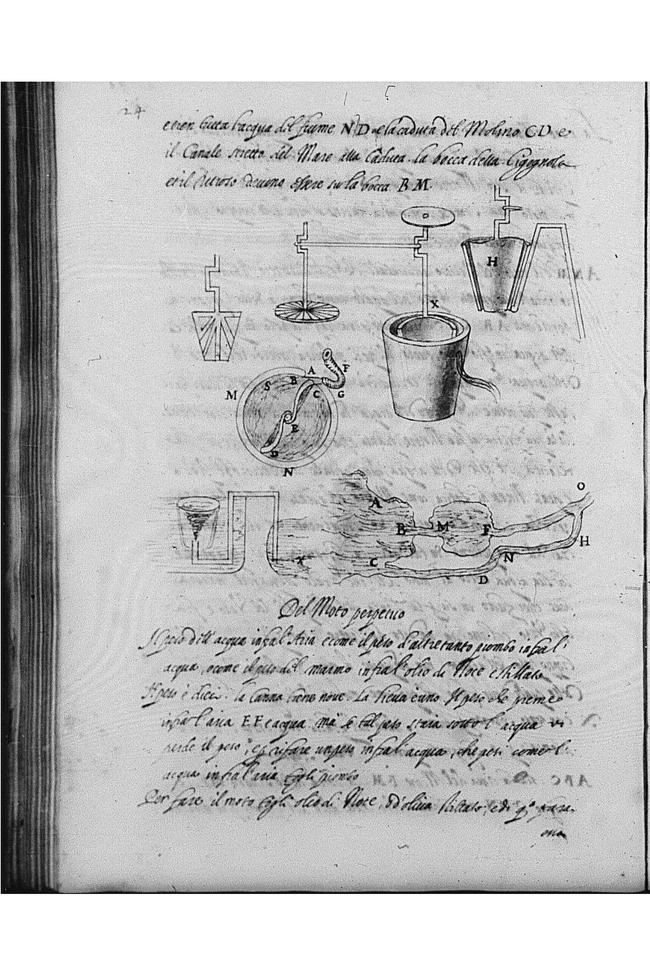 24
e tien tutta l'acqua del fiume N D e la caduta del Molino C D e
il Canale stretto del Mare alla Caduta. la bocca della Cigognola
et il retroso devono essere su la bocca B M.
H
X
A
F
S
B
C
G
M
E
D
N
A
O
B
M
F
H
N
C
D
X
Del Moto perpetuo
Il peso dell'acqua infra l'Aria è come il peso d'altretanto piombo infra l'
acqua, o come il peso del marmo infra l'olio di Noce stillato
Il peso è dieci: la Canna tiene nove. La è uno. Il peso che preme
infra l'aria E F e acqua, ma se tal peso staria sotto l'acqua vi
perde il peso, un peso infra l'acqua, che pesi come l'
acqua infra l'aria piombo
Per fare il moto olio di Noce, d'oliva stillato,
one